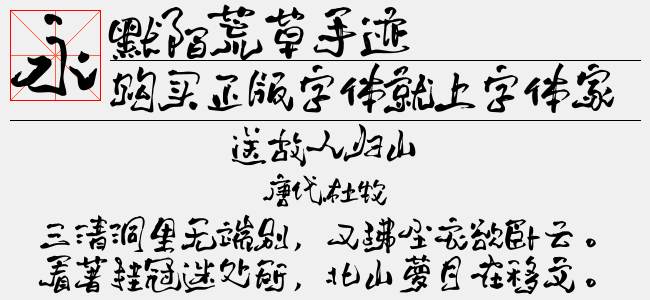 永
默陌荒草手迹
购买正版字体就上字体家
送故人归山
唐代杜牧
三清洞里无端别，又拂尘衣欲卧云。
看著挂冠迷处所，北山萝月在移文。